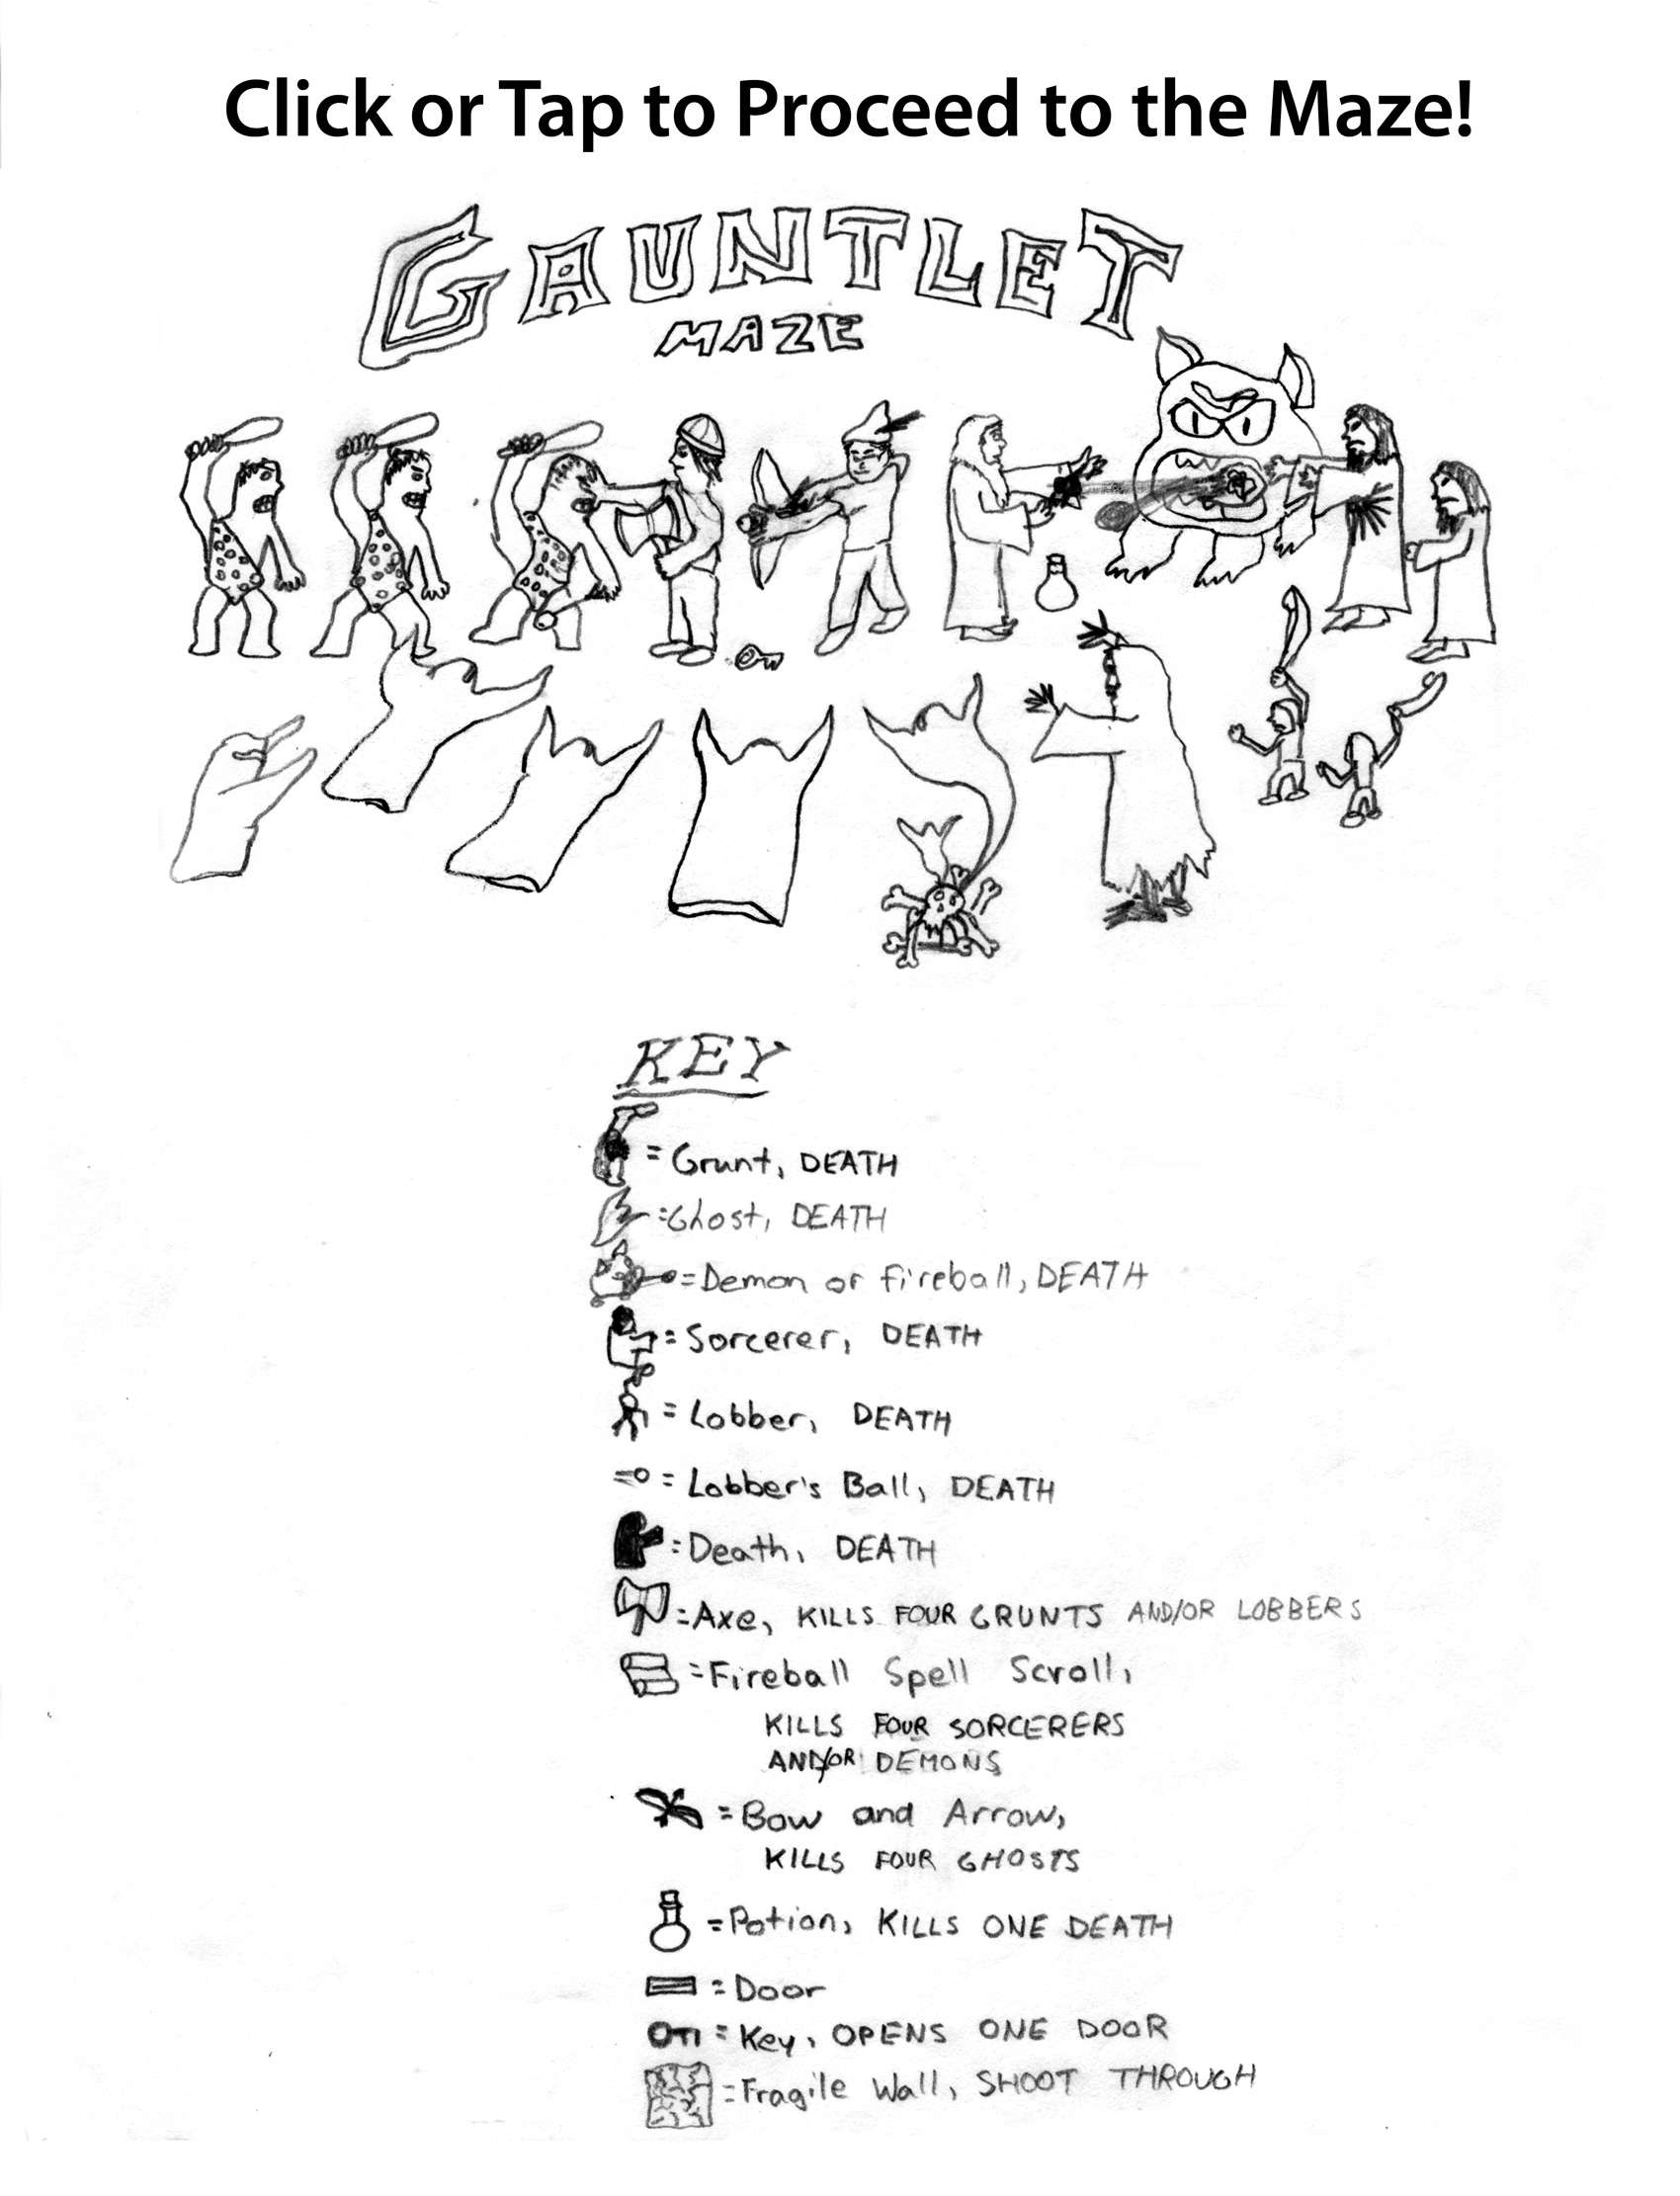 Click or Tap to Proceed to the Maze!
GAUNTLET
MAZE
KEY
= Grunt, DEATH
= Ghost, DEATH
= Demon or fireball, DEATH
= Sorcerer, DEATH
= Lobber, DEATH
= Lobber's Ball, DEATH
= Death, DEATH
= Axe, KILLS FOUR GRUNTS AND/OR LOBBERS
= Fireball Spell Scroll,
KILLS FOUR SORCERERS
AND/OR DEMONS
= Bow and Arrow,
KILLS FOUR GHOSTS
= Potion, KILLS ONE DEATH
= Door
= Key, OPENS ONE DOOR
= Fragile Wall, SHOOT THROUGH